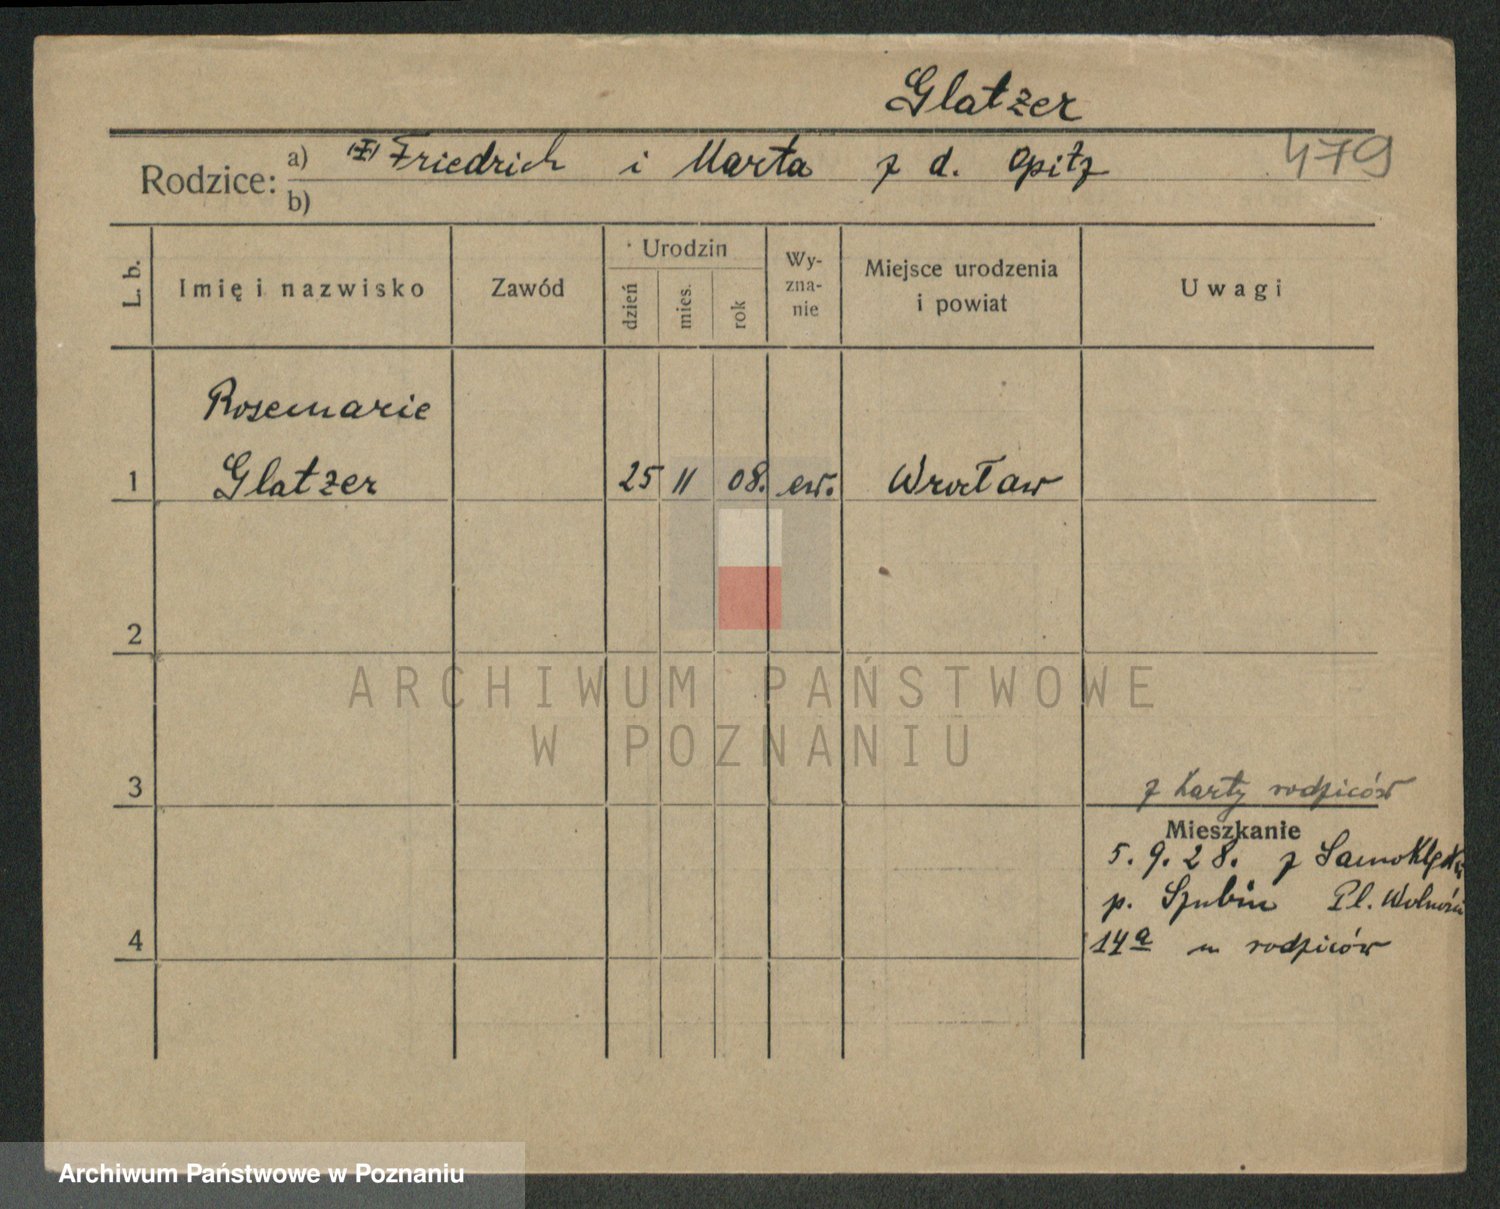 Glatzer
479
Rodzice: a) Friedrich i Marta z d. Opitz
b)
L. b.
Imię i nazwisko
Zawód
Urodzin
dzień
mies.
rok
Wy-
zna-
nie
Miejsce urodzenia
i powiat
Uwagi
Rosemarie
1 Glatzer 25 11 08. ew. Wrocław
2
ARCHIWUM PAŃSTWOWE
W POZNANIU
3
z Karty rodziców
Mieszkanie
5. 9. 28. z
p. Szubin Pl. Wolności
4
14a u rodziców
Archiwum Państwowe w Poznaniu